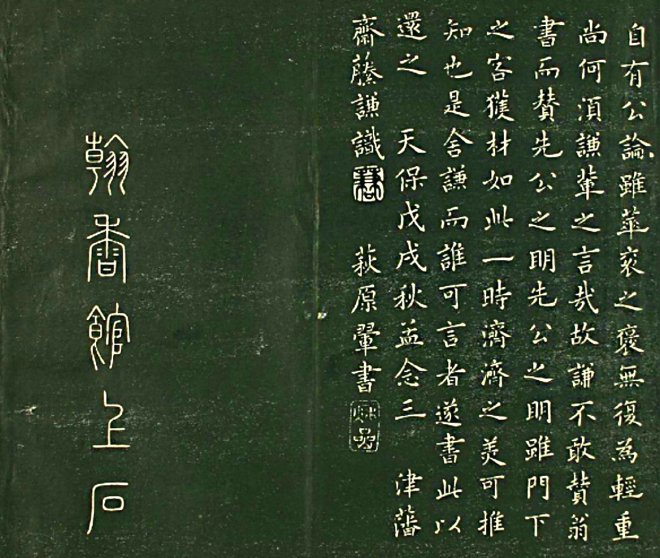 自有公論雖華袞之褒無復為輕重
尚何須謙輩之言哉故謙不敢贊翁
書而贊先公之明先公之明雖門下
之客獲材如此一時濟濟之美可推
知也是舍謙而誰可言者遂書此以
還之　天保戊戌秋孟念三　津藩
齋藤謙識　萩原翬書
翰香館上石